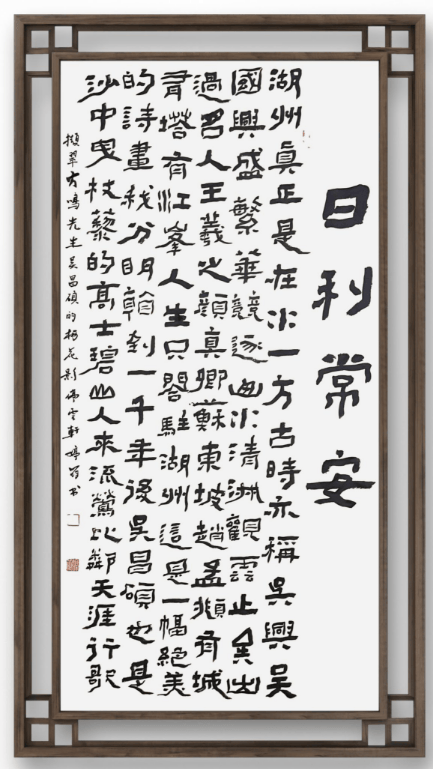 日利常安
湖州真正是在水一方古時亦稱吳興吳
國興盛繁華競逐水清洲觀雲止出
過名人王羲之顏真卿蘇東坡趙孟頫有城
有塔有江峯人生只閤駐湖州這是一幅絕美
的詩畫我分明到一千年後吳昌碩也是
沙中曳杖藜的高士碧山人來流鶯比鄰天涯行歌
擷翠方鳴先生吳昌碩的梅花影軒婷書